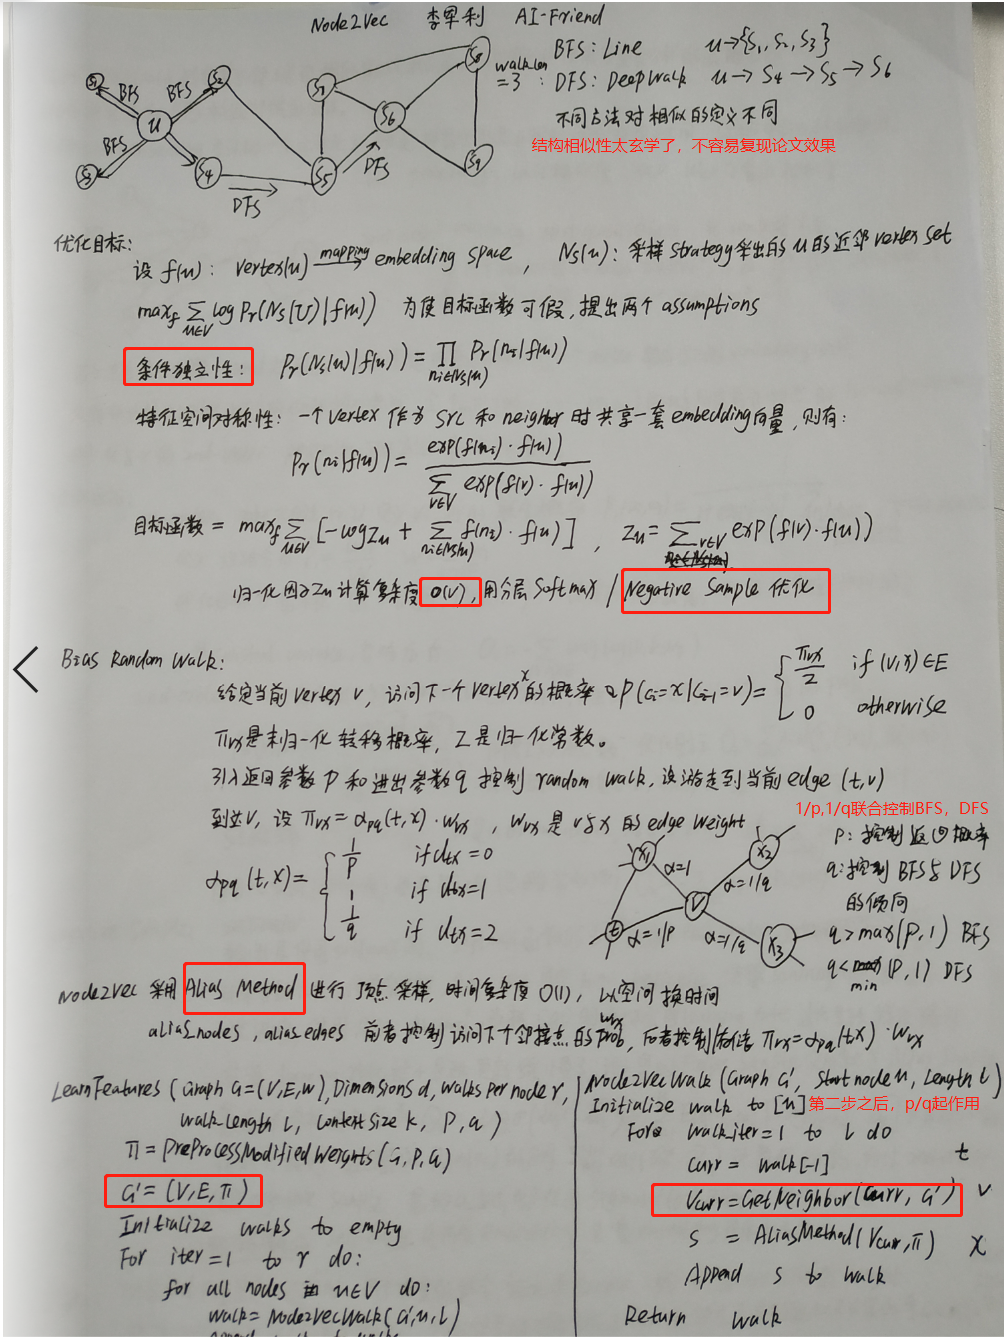 Node2Vec 李军利 AI-Friend
BFS: Line u→{S1, S2, S3}
walk_len=3: DFS: DeepWalk u→S4→S5→S6
不同方法对相似的定义不同
结构相似性太玄学了，不容易复现论文效果
S1 BFS BFS S2 S7 S8
u S6
BFS
S3 S4 S5 DFS S9
DFS
优化目标:
设 f(u): vertex(u) mapping→ embedding space, Ns(u): 采样 strategy 采出的 u 的近邻 vertex set
max_f Σ_{u∈V} log Pr(Ns(U)|f(u)) 为使目标函数可假,提出两个 assumptions
条件独立性: Pr(Ns(u)|f(u)) = Π_{ni∈Ns(u)} Pr(ni|f(u))
特征空间对称性: 一个 vertex 作为 src 和 neighbor 时共享一套 embedding向量,则有:
Pr(ni|f(u)) = exp(f(ni)·f(u)) / Σ_{v∈V} exp(f(v)·f(u))
目标函数 = max_f Σ_{u∈V} [-log Zu + Σ_{ni∈Ns(u)} f(ni)·f(u)], Zu = Σ_{v∈V} exp(f(v)·f(u))
归一化因子Zu计算复杂度 O(V), 用分层 Softmax / Negative Sample 优化
Bias Random Walk:
给定当前 vertex v, 访问下一个 vertex x 的概率 P(ci=x|ci-1=v) = { πvx/Z if (v,x)∈E
0 otherwise
πvx是未归一化转移概率, Z是归一化常数。
引入返回参数 p 和进出参数 q 控制 random walk, 设游走到当前 edge (t,v)
1/p,1/q联合控制BFS，DFS
到达V, 设 πvx = αpq(t,x)·wvx, wvx 是 v与x 的 edge weight
αpq(t,x) = { 1/p if dtx=0
1 if dtx=1
1/q if dtx=2
X1 α=1 X2
α=1/q
V
t α=1/p α=1/q X3
p: 控制返回概率
q: 控制 BFS与 DFS
的倾向
q>max(p,1) BFS
q<min(p,1) DFS
Node2Vec 采用 Alias Method 进行顶点采样, 时间复杂度 O(1), 以空间换时间
alias_nodes, alias_edges 前者控制访问下个邻接点的 prob, 后者控制 πvx=αpq(t,x)·wvx
wvx
LearnFeatures (Graph G=(V,E,w), Dimensions d, walks per node r,
walk_length l, context size k, p, q)
π = PreProcessModifiedWeights(G,p,q)
G'=(V,E,π)
Initialize walks to empty
For iter=1 to r do:
for all nodes u∈V do:
walk = Node2VecWalk(G',u,l)
Node2VecWalk (Graph G', Start node u, Length l)
Initialize walk to [u] 第二步之后，p/q起作用
For walk_iter=1 to l do
curr = walk[-1] t
Vcurr=GetNeighbor(curr, G') v
s = AliasMethod(Vcurr,π) x
Append s to walk
Return walk